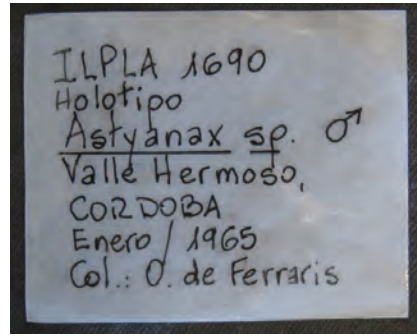 ILPLA 1690
Holotipo
Astyanax sp. ♂
Valle Hermoso,
CORDOBA
Enero / 1965
Col.: O. de Ferraris